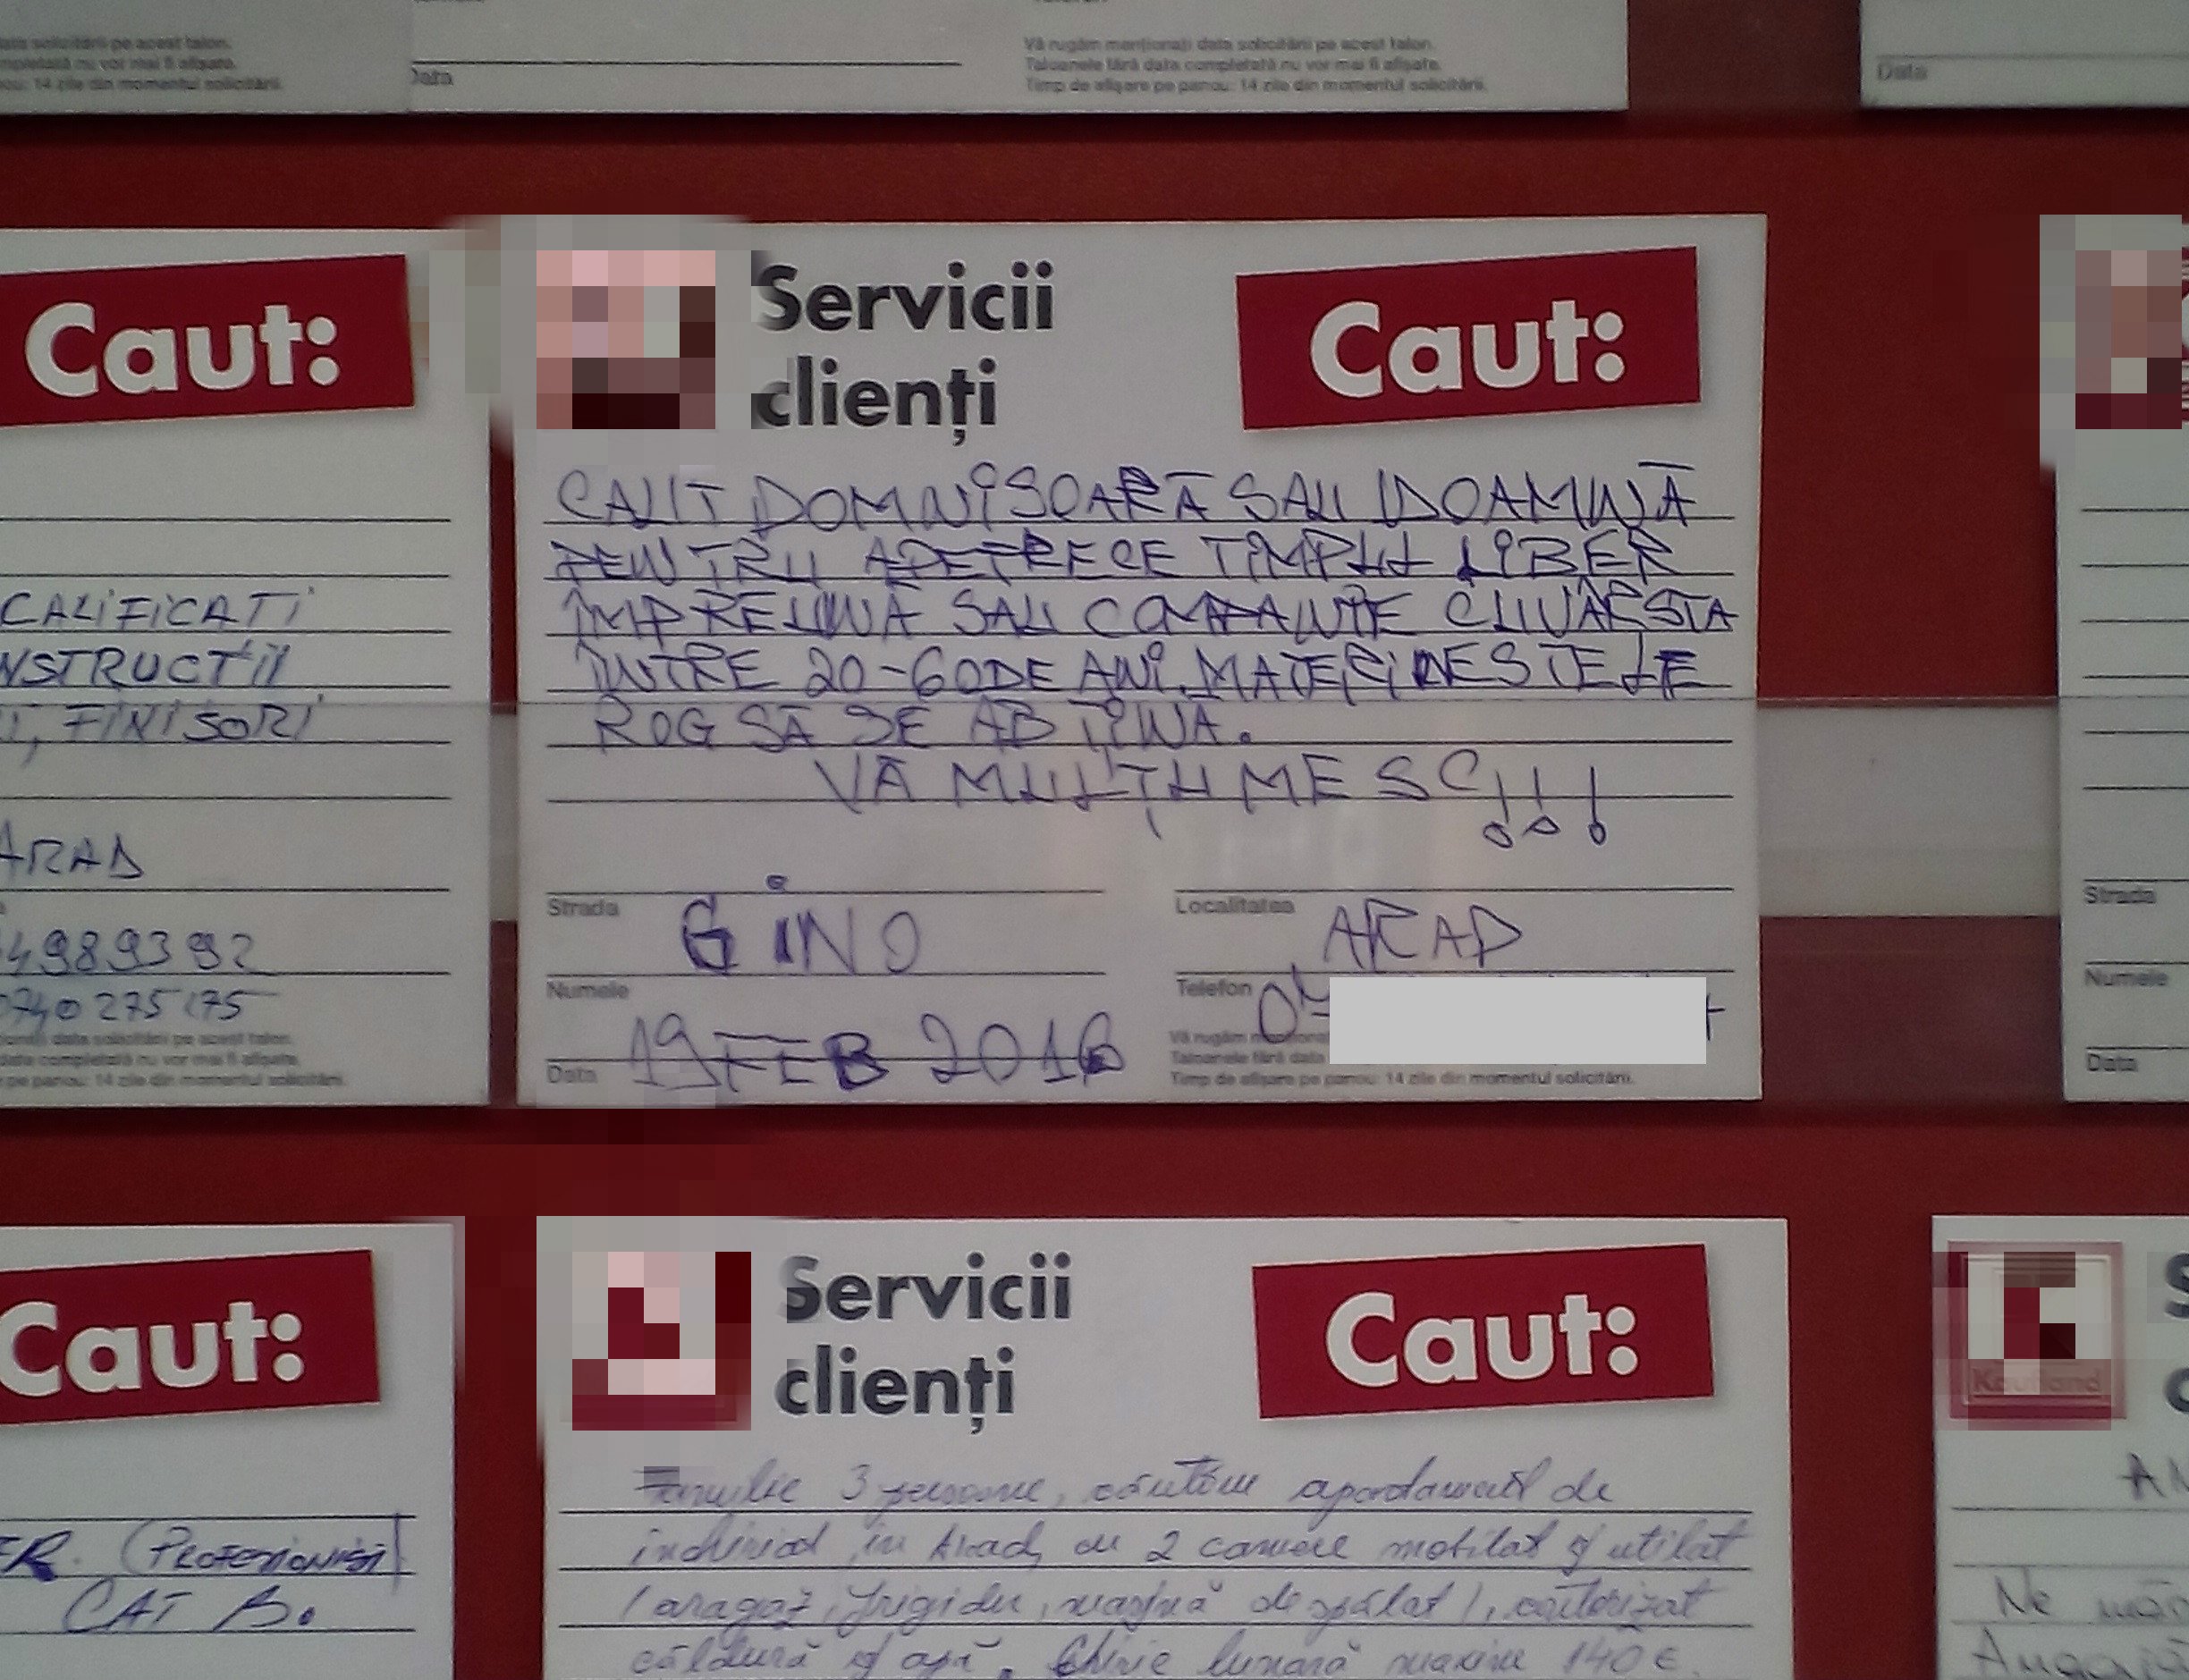 data solicitării pe acest talon.
completată nu vor mai fi afișate.
panou: 14 zile din momentul solicitării.
Data
Vă rugăm menționați data solicitării pe acest talon.
Taloanele fără data completată nu vor mai fi afișate.
Timp de afișare pe panou: 14 zile din momentul solicitării.
Data
Caut:
CALIFICATI
NSTRUCTII
, FINISORI
ARAD
4989392
0740275175
data solicitării pe acest talon.
data completată nu vor mai fi afișate.
pe panou: 14 zile din momentul solicitării.
Servicii
clienți
Caut:
CAUT DOMNIȘOARĂ SAU DOAMNĂ
PENTRU APETRECE TIMPUL LIBER
ÎMPREUNĂ SAU COMPANIE CUVÂRSTA
ÎNTRE 20-60DE ANI. MATERINESTELE
ROG SĂ SE ABȚINĂ.
VĂ MULȚUMESC!!!
Strada
Localitatea
GINO
ARAD
Numele
Telefon
19 FEB 2016
Data
Vă rugăm
Taloanele fără data
Timp de afișare pe panou: 14 zile din momentul solicitării.
Strada
Numele
Data
Caut:
(PROFESIONIST)
CAT B.
Servicii
clienți
Caut:
Familie 3 persoane, căutăm apartament de
închiriat în Arad, cu 2 camere mobilat și utilat
(aragaz, frigider, mașină de spălat), contorizat
căldură și apă. Chirie lunară maxim 140 €.
Kaufland
Ne